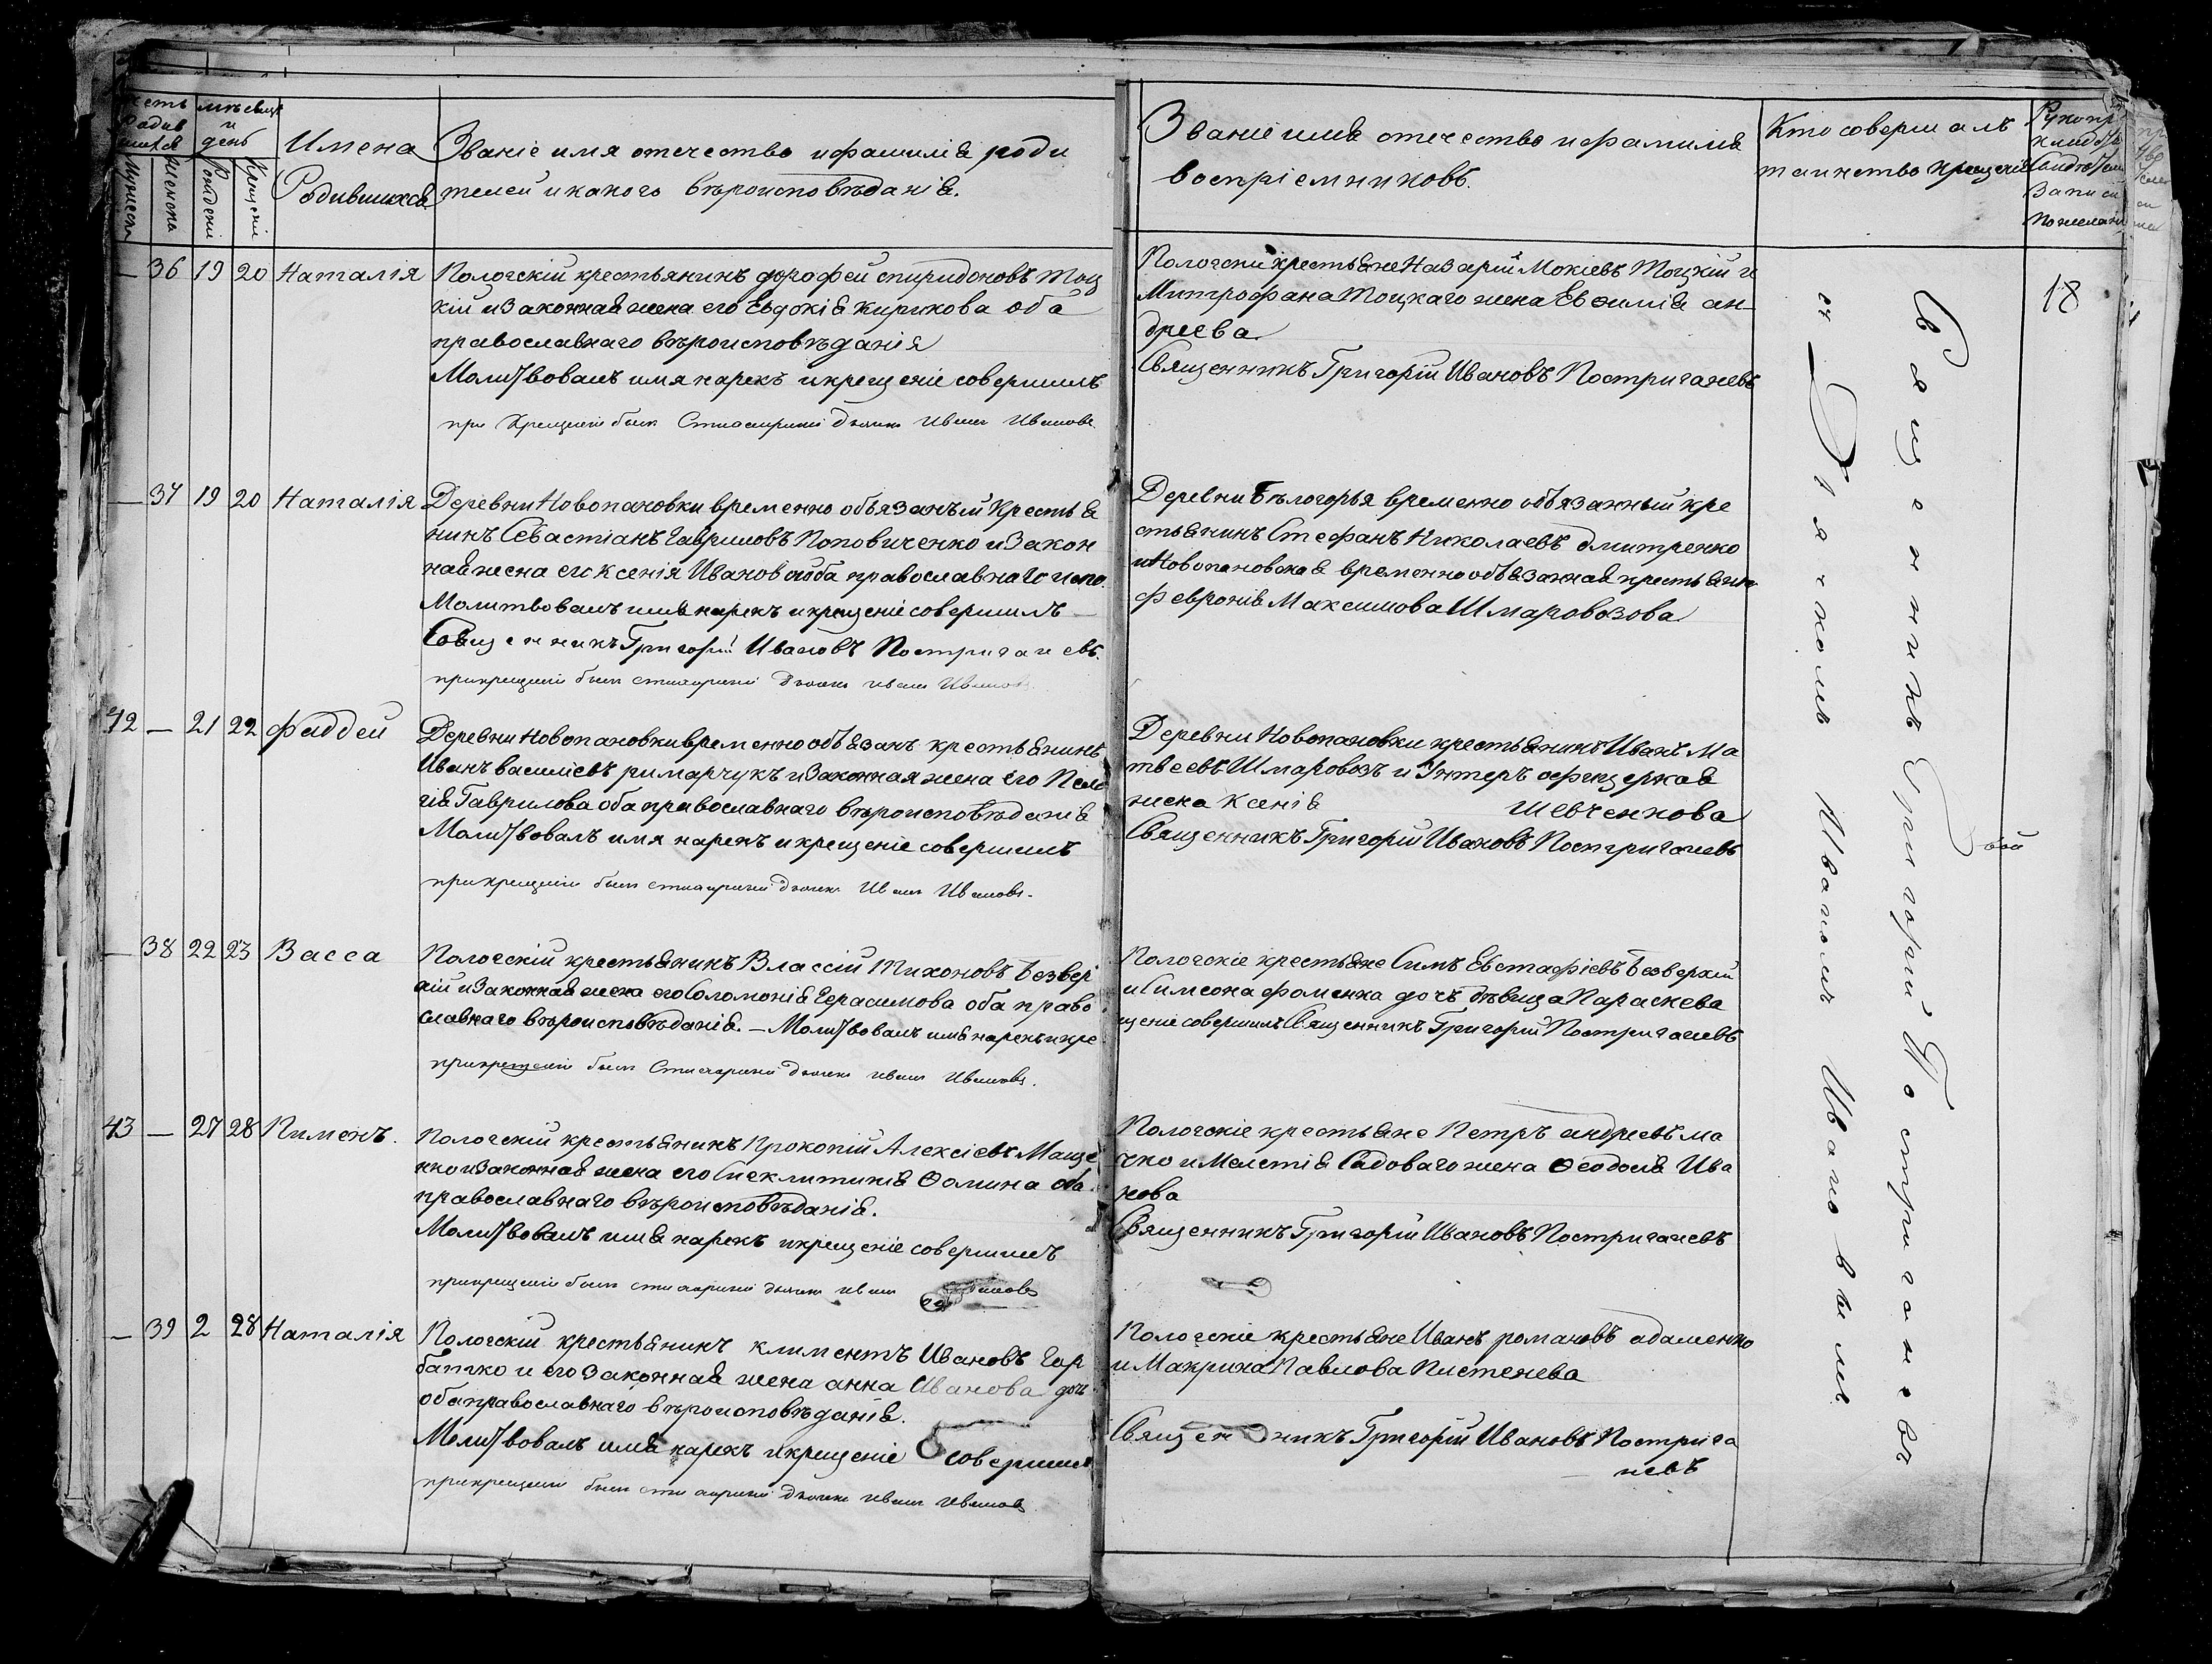 мѣсяцъ
и
день
Имена
Родившихся
Званіе имя отечество и фамиліа роди
телей и какого вѣроисповѣданіа.
Званіе имя отечество и фамиліа
воспріемниковъ.
Кто совершалъ
таинство крещенія
36 19 20 Наталія
Пологскій крестьянинъ дорофей спиридоновъ Тоц
кій и Законнаа жена его Евдокіа Кирикова оба
православнаго вѣроисповѣданія
Молитвовалъ имя нарекъ и крещеніе совершилъ
при Крещеніи былъ Стихарный дьячекъ Иванъ Ивановъ
Пологски крестьяне Назарій Мокіевъ Тоцкій и
Митрофана Тоцкаго жена Евѳиміа ан-
дреева
Священникъ Григорій Ивановъ Постригачевъ
18
37 19 20 Наталія
Деревни Новопановки временно обьязаный Кресть а
нинъ Севастіанъ Гавриловъ Поповиченко и Закон
наа жена его Ксенія Иванова оба православнаго испо.
Молитвовалъ имя нарекъ и крещеніе совершилъ
Священникъ Григорій Ивановъ Постригачевъ.
при крещеніи былъ стихарный дьячекъ иванъ Ивановъ
Деревни Бѣлогорья временно обязанный кре
стьанинъ Стефанъ Николаевъ дмитренко
и Новопановскаа временно обьазаннаа крестьанка
февроніа Максимова Шмаровозова
42 — 21 22 фаддей
Деревни Новопановки временно обьазанъ крестьанинъ
Иванъ василіевъ римарчукъ и Законная жена его Пела
гіа Гаврилова оба православнаго вѣроисповѣданіа
Молитвовалъ имя нарекъ и крещеніе совершилъ
при крещеніи былъ стихарный дьячекъ Иванъ Ивановъ.
Деревни Новопановки крестьанинъ Иванъ Ма
твеевъ Шмаровозъ и Унтеръ офицерскаа
жена Ксеніа Шевченкова
Священникъ Григорій Ивановъ Постригачевъ
— 38 22 23 Васса
Пологскій крестьанинъ Влассій Тихоновъ Безвер
хій и Законнаа жена его Соломоніа Герасимова оба право
славнаго вѣроисповѣданіа. — Молитвовалъ имя нарекъ и кре
при крещеніи былъ Стихарный дьячекъ иванъ Ивановъ.
Пологскіе крестьане Симъ Евстафіевъ Безверхій
и Симеона фоменка дочь дѣвица Параскева
щеніе совершилъ Священникъ Григорій Постригачевъ
43 — 27 28 Пименъ.
Пологскій крестьанинъ Прокопій Алексіевъ Маще
нко и Законнаа жена его Синклитикіа Ѳомина оба
православнаго вѣроисповѣданіа.
Молитвовалъ имя нарекъ и крещеніе совершилъ
при крещеніи былъ стихарный дьячекъ иванъ Ивановъ
Пологскіе крестьане Петръ андреевъ ма
чко и Мелетіа Садоваго жена Ѳеодосіа Ива
нова
Священникъ Григорій Ивановъ Постригачевъ
— 39 2 28 Наталія
Пологскій крестьанинъ климентъ Ивановъ Гор
батко и его Законнаа жена анна Иванова дочь
оба православнаго вѣроисповѣданіа.
Молитвовалъ имя нарекъ и крещеніе совершилъ
при крещеніи былъ стихарный дьячекъ иванъ Ивановъ
Пологскіе крестьане Иванъ романовъ адаменко
и Макрина Павлова Пистенева
Священникъ Григорій Ивановъ Пострига
чевъ
Священникъ Григорій Постригачевъ
съ Дьячкомъ Иваномъ Ивановымъ